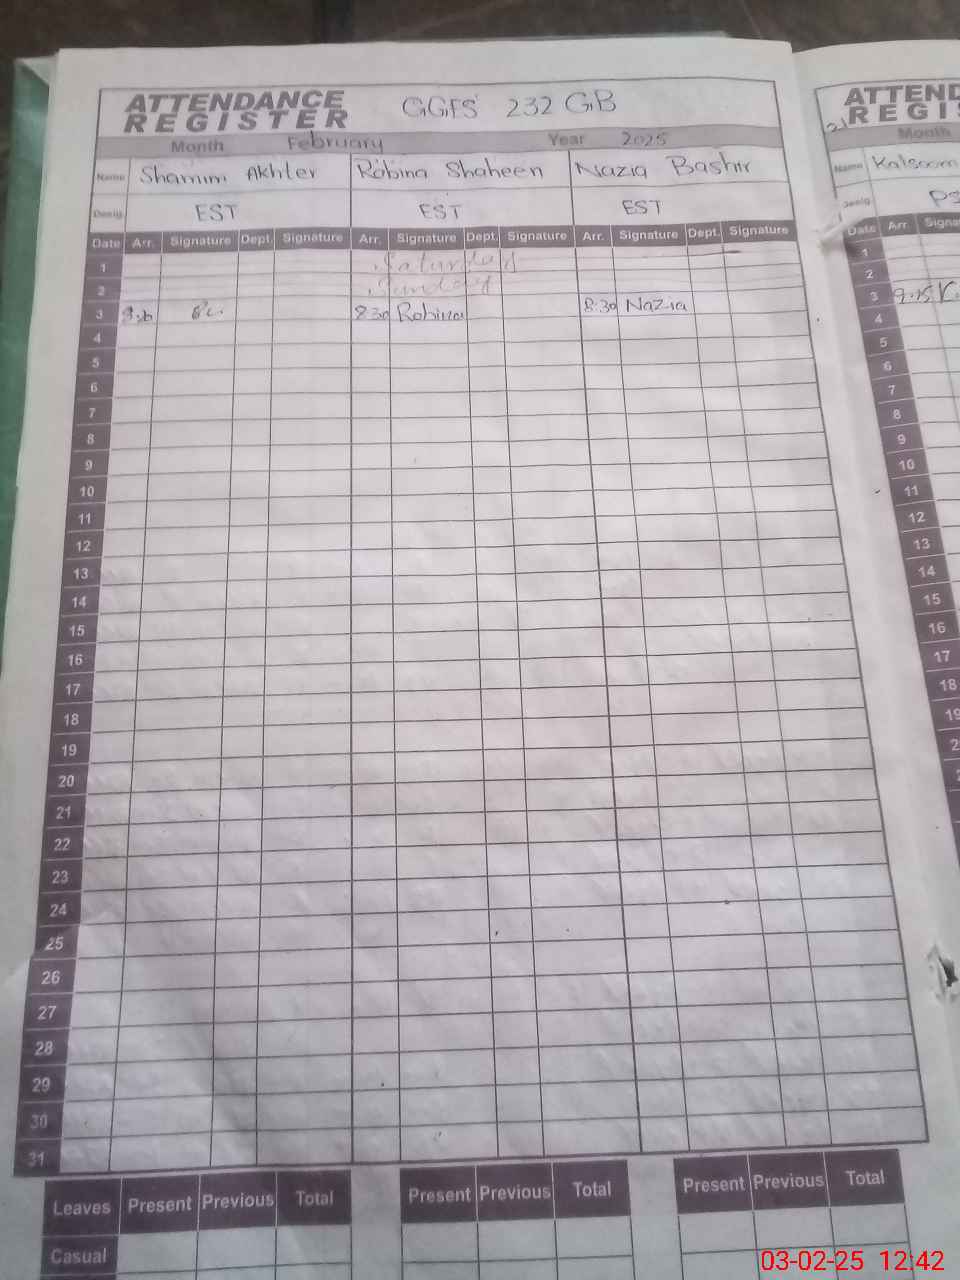 ATTENDANCE REGISTER GGES 232 GB
Month February Year 2025
Name Shamim Akhter Robina Shaheen Nazia Bashir
Desig. EST EST EST
Date Arr. Signature Dept. Signature Arr. Signature Dept. Signature Arr. Signature Dept. Signature
1 Saturday
2 Sunday
3 8:30 Robina 8:30 Nazia
4
5
6
7
8
9
10
11
12
13
14
15
16
17
18
19
20
21
22
23
24
25
26
27
28
29
30
31
Leaves Present Previous Total Present Previous Total Present Previous Total
Casual
ATTEND
REGIS
Month
Name Kalsoom
Desig. PS
Date Arr. Signa
1
2
3 9.15
4
5
6
7
8
9
10
11
12
13
14
15
16
17
18
19
03-02-25 12:42